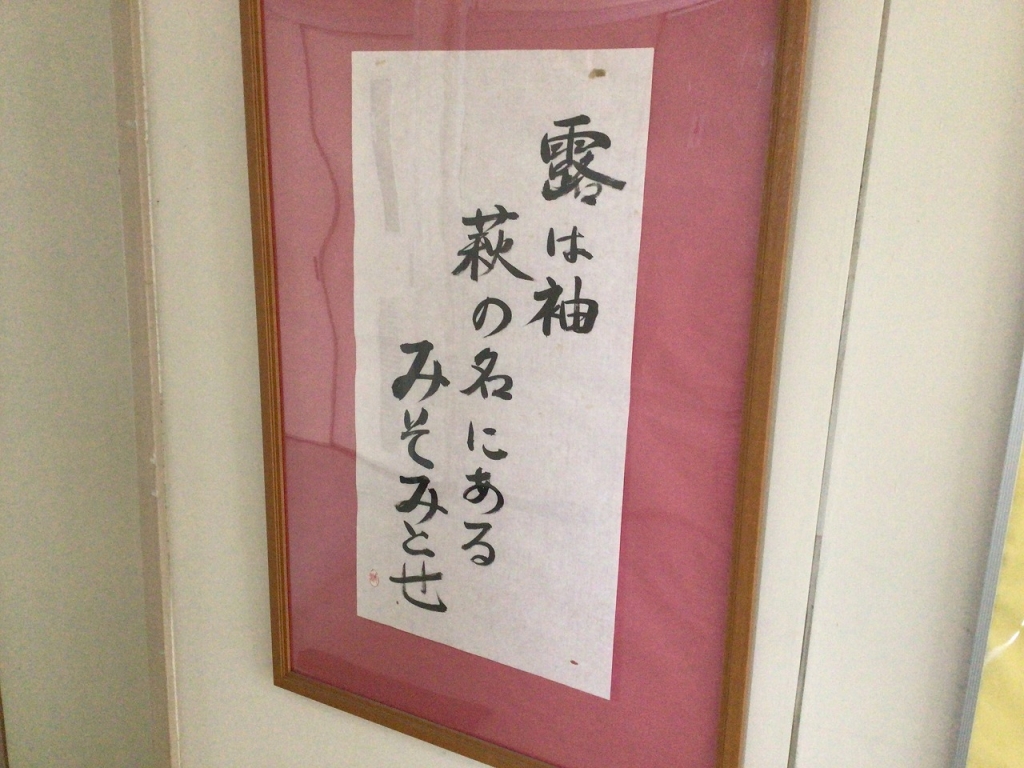 露は袖
萩の名にある
みそみとせ